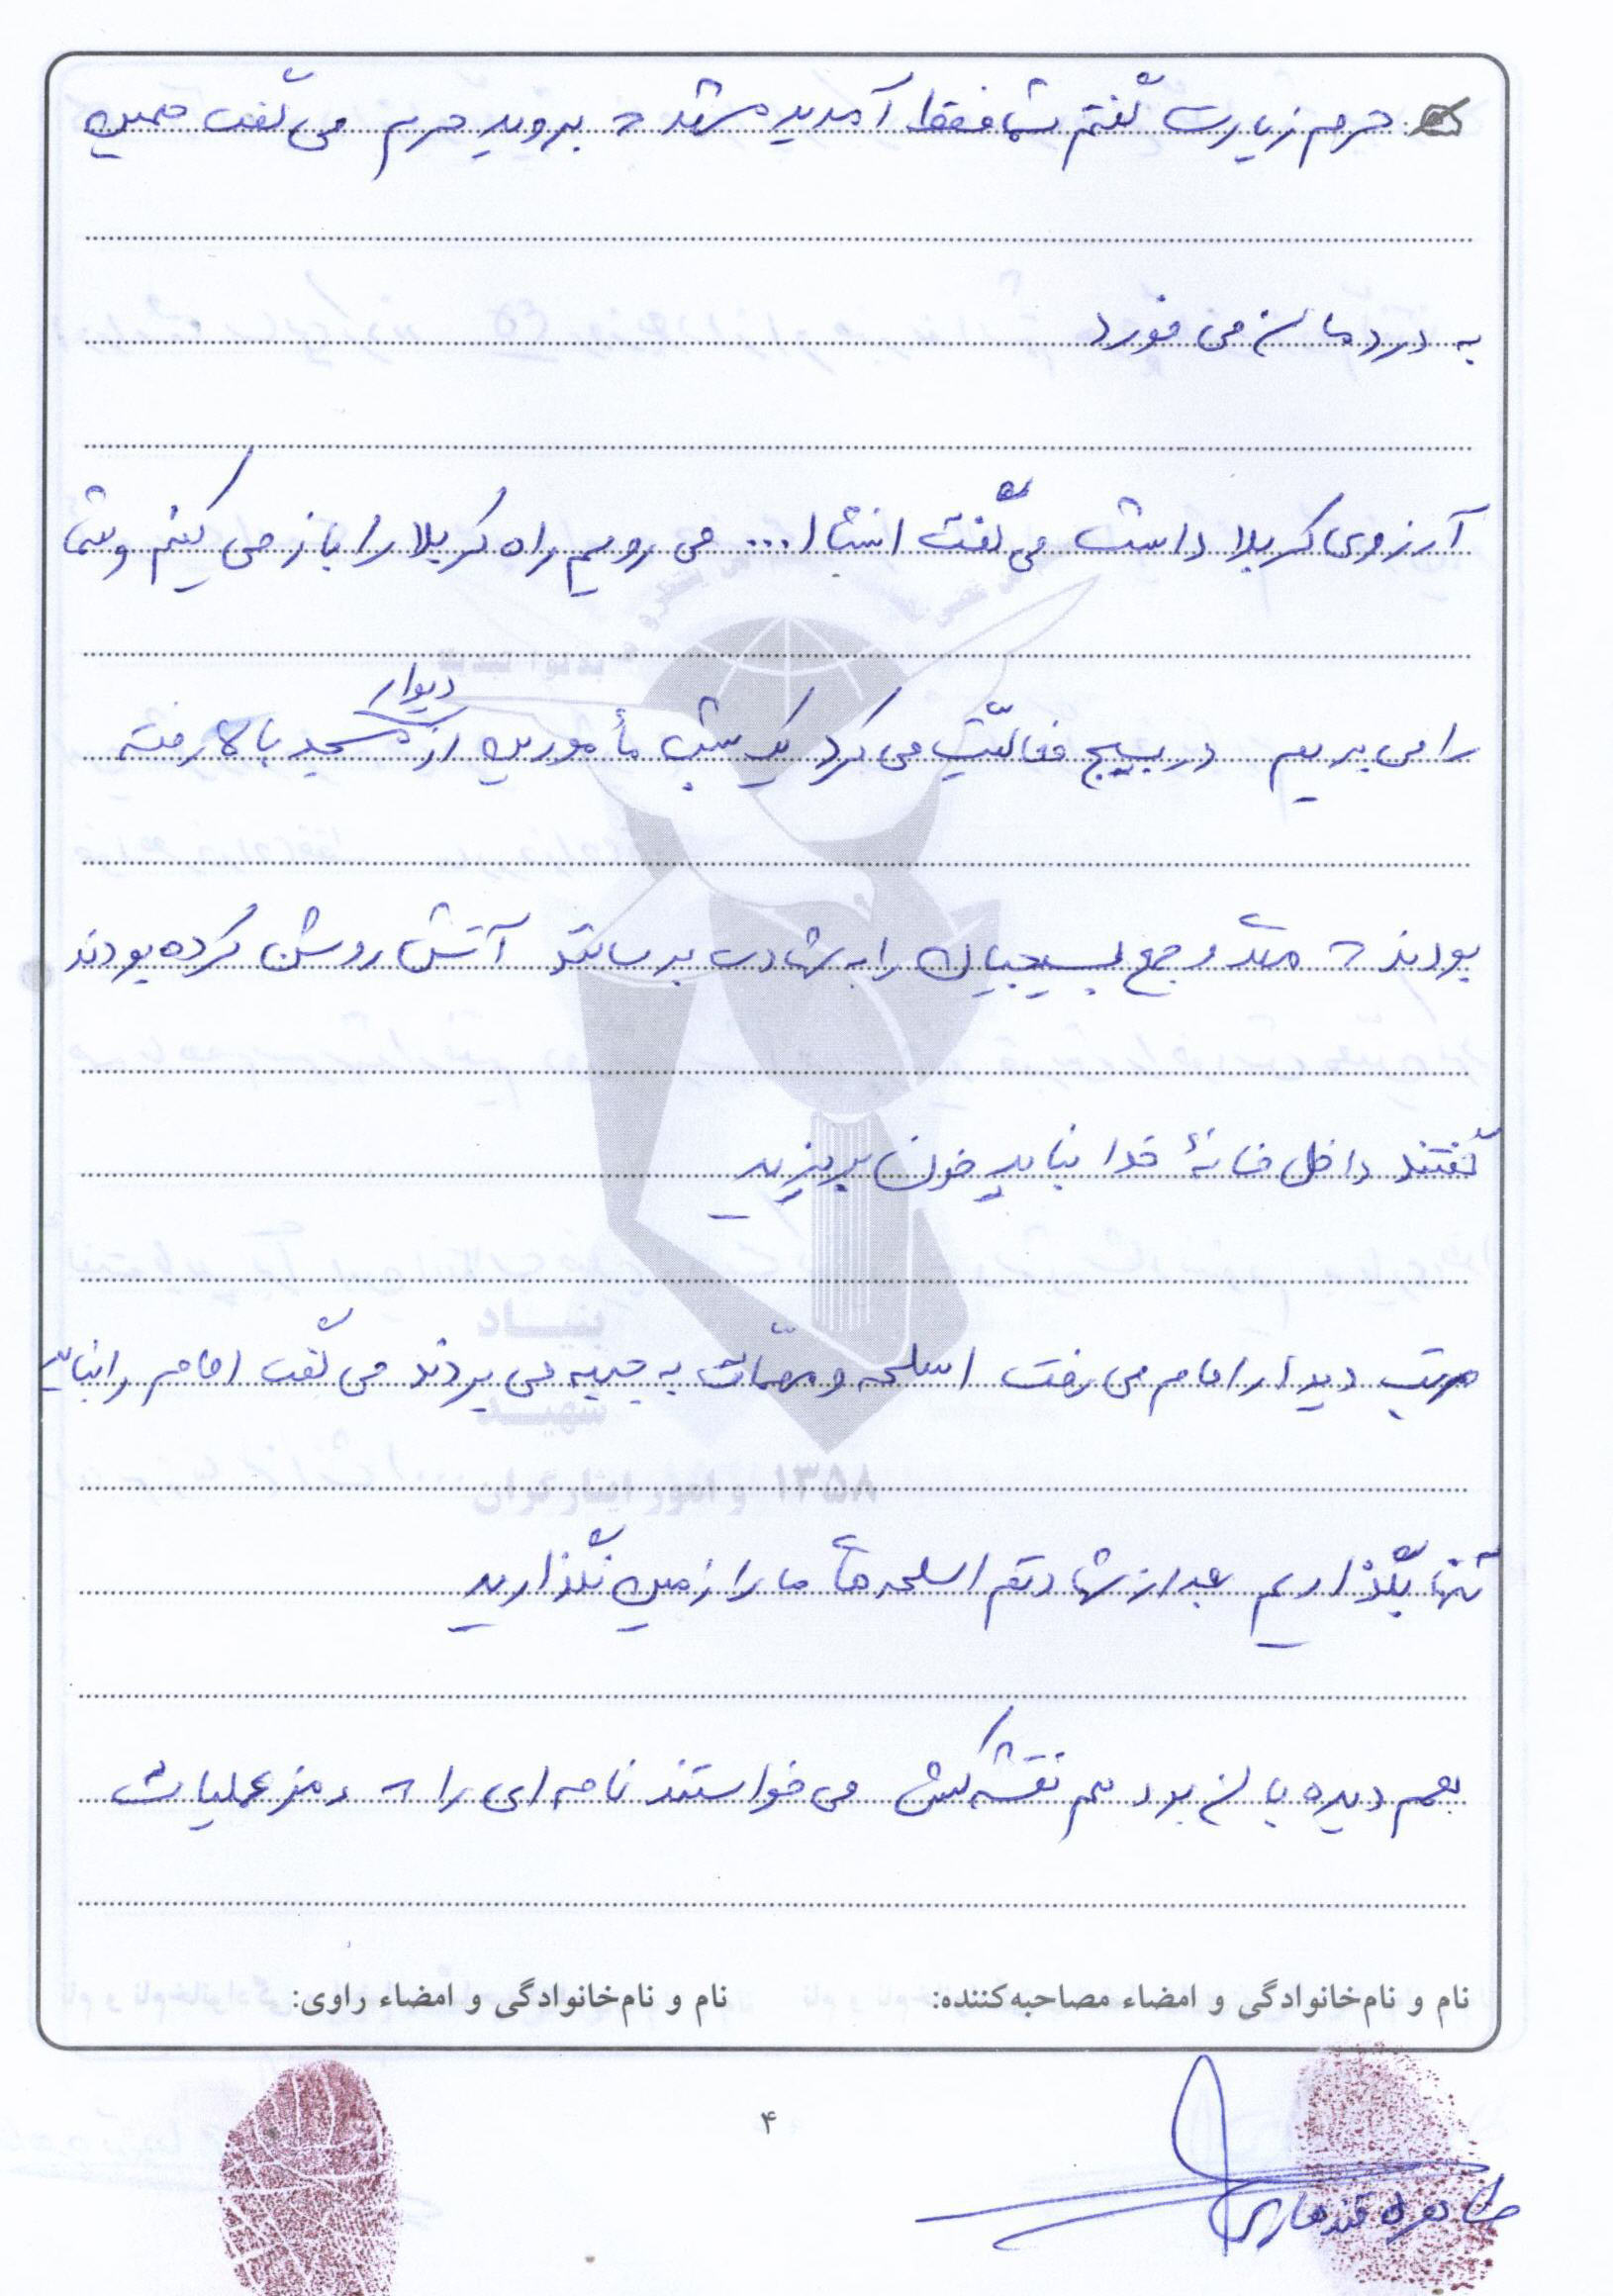 حرم زیارت گفتم شما فقط آمدید مشهد که بروید حرم می گفت همین
به دردمان می خورد
آرزوی کربلا داشت می گفت انشا ا... می رویم راه کربلا را باز می کنیم و شما
را می بریم در بسیج فعالیّت می کرد یک شب مأمورین از دیوار مسجد بالا رفته
بودند که جمع بسیجیان را به شهادت برسانند آتش روشن کرده بودند
گفتند داخل خانهٔ خدا نباید خون بریزید
مرتب دیدار امام می رفت اسلحه و مهمّات به جبهه می بردند می گفت امام را نباید
تنها بگذاریم بعد از شهادتم اسلحه های ما را زمین نگذارید
هم دیده بان بود هم نقشه کش می خواستند نامه ای را که رمز عملیات
بنیاد
شهید
و امور ایثارگران
۱۳۵۸
نام و نام‌خانوادگی و امضاء مصاحبه‌کننده:
نام و نام‌خانوادگی و امضاء راوی:
۴
طاهره قندهاری